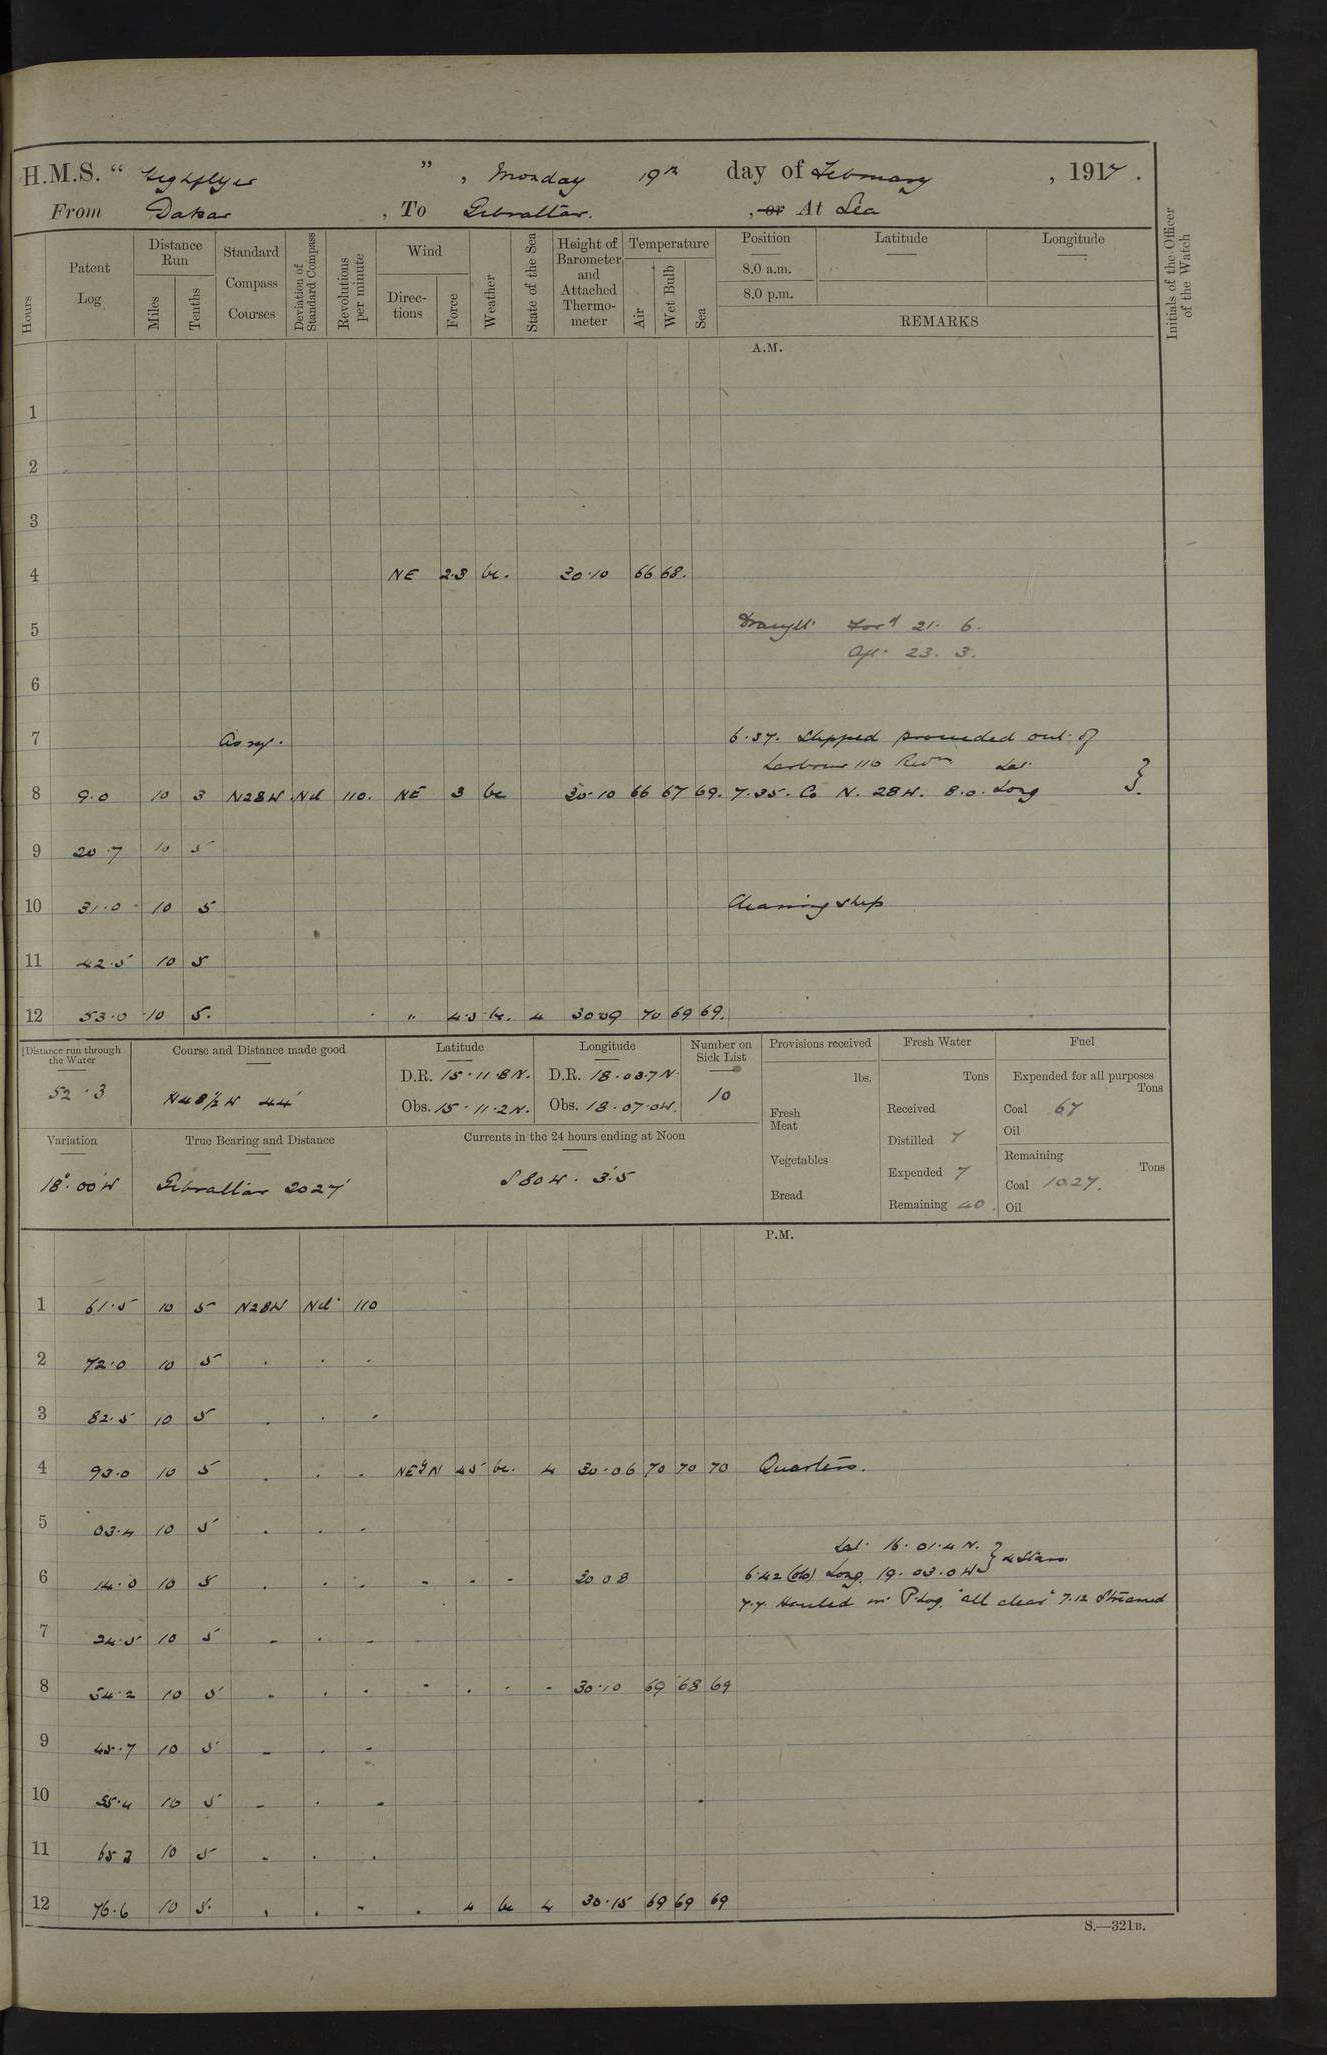 H.M.S. “ Highflyer ” , Monday 19th day of February , 1917 .
From Dakar , To Gibraltar. , or At Sea
Hours
Patent Log
Distance Run
Miles
Tenths
Standard Compass Courses
Deviation of Standard Compass
Revolutions per minute
Wind
Directions
Force
Weather
State of the Sea
Height of Barometer and Attached Thermometer
Temperature
Air
Wet Bulb
Sea
Position
8.0 a.m.
8.0 p.m.
Latitude
Longitude
REMARKS
Initials of the Officer of the Watch
A.M.
1
2
3
4 NE 2.3 bc. 30.10 66 68.
5 Draught Ford 21. 6.
Aft 23. 3.
6
7 As req. 6.37. Slipped proceeded out of
harbour 110 Revns Lat.
8 9.0 10 3 N28W Nil 110. NE 3 bc 30.10 66 67 69. 7.35. Co N. 28W. 8.0. Long }
9 20.7 10 5
10 31.0 10 5 Cleaning ship
11 42.5 10 5
12 53.0 10 5. " 4.5 bc. 4 30.09 70 69 69.
Distance run through the Water
52.3
Course and Distance made good
N48½W 44'
Latitude
D.R. 15.11.8N.
Obs. 15.11.2N.
Longitude
D.R. 18.03.7N.
Obs. 18.07.0W.
Number on Sick List
10
Provisions received
lbs.
Fresh Meat
Vegetables
Bread
Fresh Water
Tons
Received
Distilled 7
Expended 7
Remaining 40.
Fuel
Expended for all purposes
Tons
Coal 67
Oil
Remaining
Tons
Coal 1027.
Oil
Variation
18°.00'W
True Bearing and Distance
Gibraltar 2027'
Currents in the 24 hours ending at Noon
S80W. 3.5
P.M.
1 61.5 10 5 N28W Nil 110
2 72.0 10 5 . . .
3 82.5 10 5 . . .
4 93.0 10 5 . . . NEbyN 45 bc. 4 30.06 70 70 70 Quarters.
5 03.4 10 5 . . .
Lat. 16.01.4 N. } 4 Stars
6 14.0 10 5 . . . - . - 30 08 6.42 (obs) Long. 19.03.0W
7.7. Hauled in P.Log. "all clear" 7.12 Streamed
7 24.5 10 5 - . -
8 34.2 10 5 - . - - . - - 30.10 69 68 69
9 45.7 10 5 - . -
10 55.4 10 5 - . -
11 65 3 10 5 - . .
12 76.6 10 5. . . - . 4 bc 4 30.15 69 69 69
S.—321B.